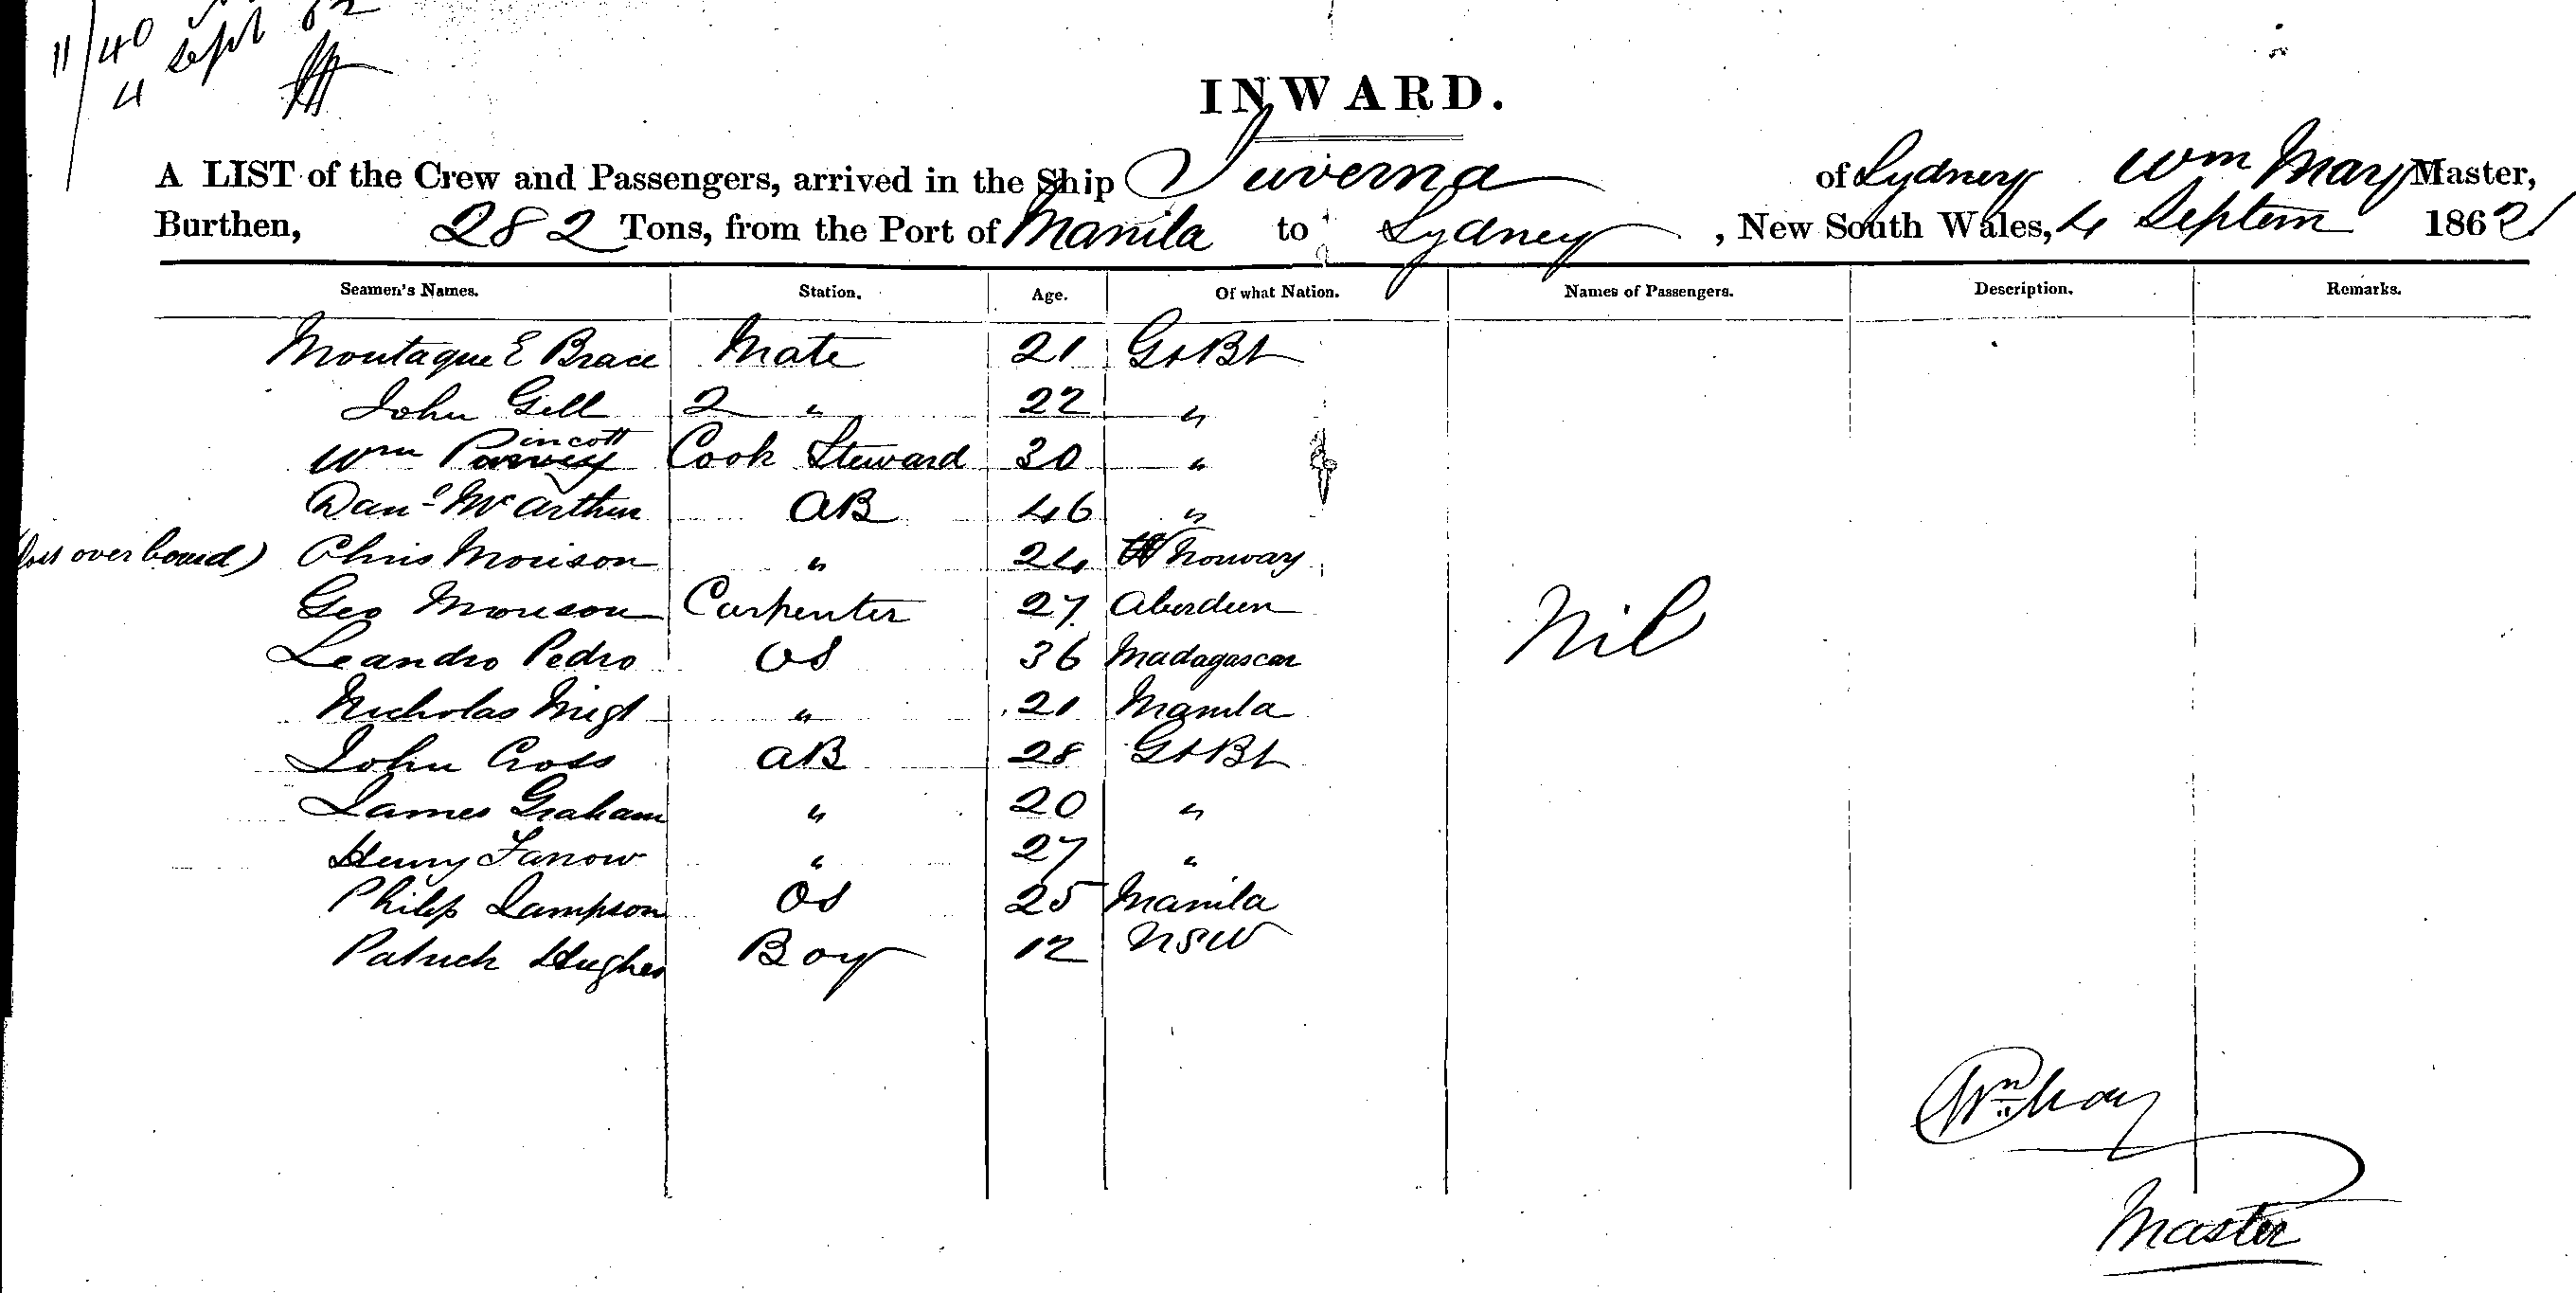 11/40
4 Sept 62
INWARD.
A LIST of the Crew and Passengers, arrived in the Ship Juverna of Sydney Wm May Master,
Burthen, 282 Tons, from the Port of Manila to Sydney, New South Wales, 4 Septem 1862
Seamen's Names. Station. Age. Of what Nation. Names of Passengers. Description. Remarks.
Montague E Brace Mate 21 Gt Bt
John Gell 2 " 22 "
Wm Pincott Cook Steward 30 "
Danl McArthur AB 46 "
(loss over board) Chris Morison " 24 Norway
Geo Morison Carpenter 27 Aberdeen
Leandro Pedro OS 36 Madagascar
Nil
Nicholas Migl " 21 Manila
John Cross AB 28 Gt Bt
James Graham " 20 "
Henry Farrow " 27 "
Philip Sampson OS 25 Manila
Patrick Hughes Boy 12 NSW
Wm May
Master